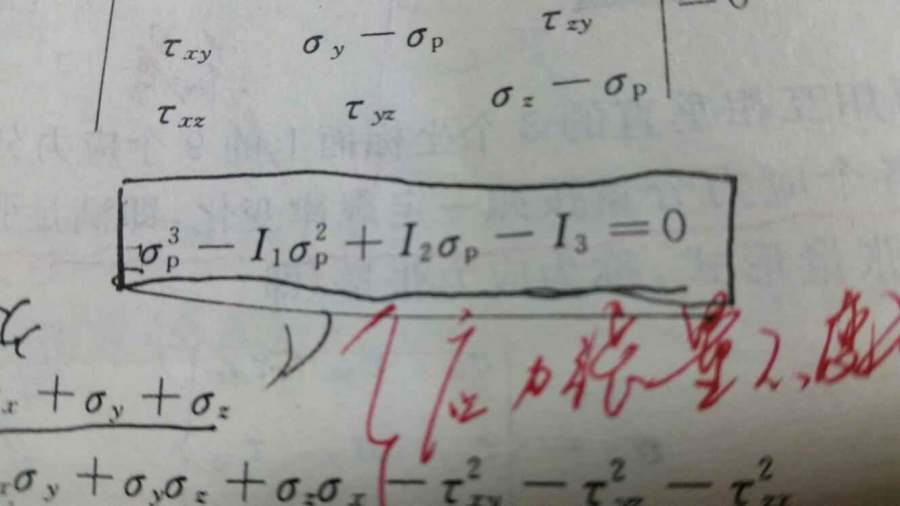 τxy σy − σp τzy = 0
τxz τyz σz − σp
σp³ − I₁σp² + I₂σp − I₃ = 0
应力张量不变
x + σy + σz
xσy + σyσz + σzσx − τ²xy − τ² − τ²